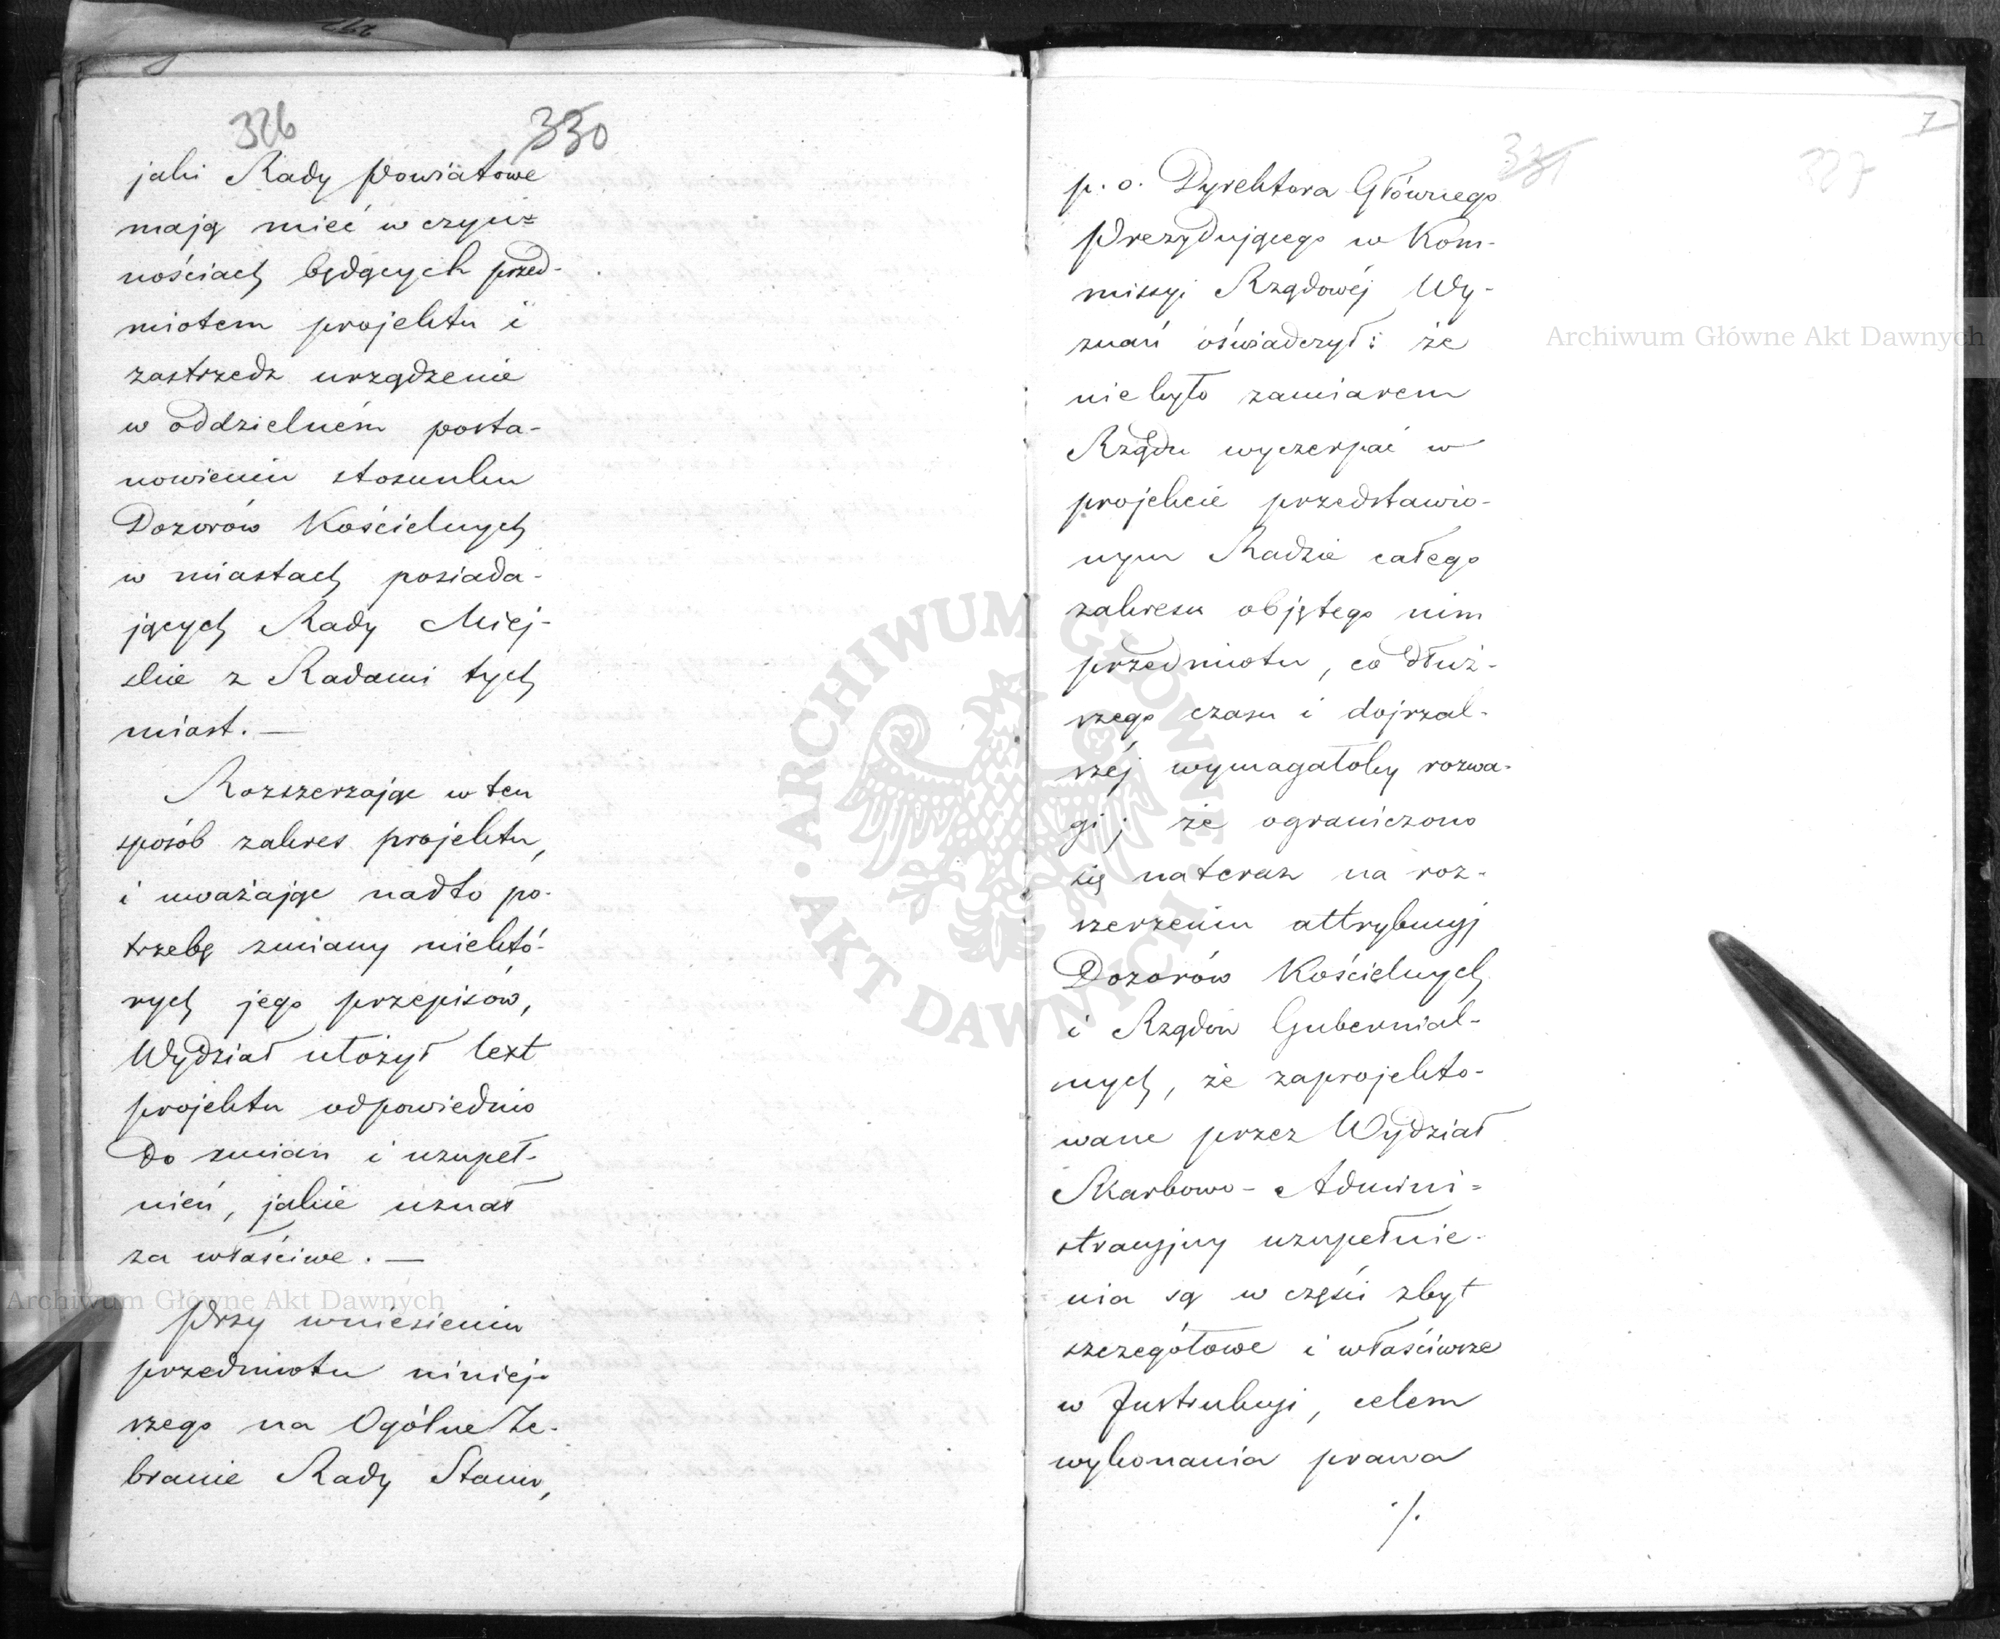 326 330
jaki Rady Powiatowe
mają mieć w czyn=
nościach będących przed-
miotem projektu i
zastrzedz urządzenie
w oddzielném posta-
nowieniu stosunku
Dozorów Kościelnych
w miastach posiada-
jących Rady Miej-
skie z Radami tych
miast. —
Rozszerzając w ten
sposób zakres projektu,
i uważając nadto po-
trzebę zmiany niektó-
rych jego przepisów,
Wydział ułożył text
projektu odpowiednio
do zmian i uzupeł-
nień, jakie uznał
za właściwe. —
Przy wniesieniu
przedmiotu niniej-
szego na Ogólne Ze-
branie Rady Stanu,
7
331 327
p. o. Dyrektora Głównego
Prezydującego w Kom-
missyi Rządowéj Wy-
znań oświadczył: że
nie było zamiarem
Rządu wyczerpać w
projekcie przedstawio-
nym Radzie całego
zakresu objętego nim
przedmiotu, co dłuż-
szego czasu i dojrzal-
széj wymagałoby rozwa-
gi; że ograniczono
się nateraz na roz-
szerzeniu attrybucyj
Dozorów Kościelnych
i Rządów Gubernial-
nych, że zaprojekto-
wane przez Wydział
Skarbowo-Admini=
stracyjny uzupełnie-
nia są w części zbyt
szczegółowe i właściwsze
w Instrukcyi, celem
wykonania prawa
./.
Archiwum Główne Akt Dawnych
Archiwum Główne Akt Dawnych
· ARCHIWUM GŁÓWNE · AKT DAWNYCH